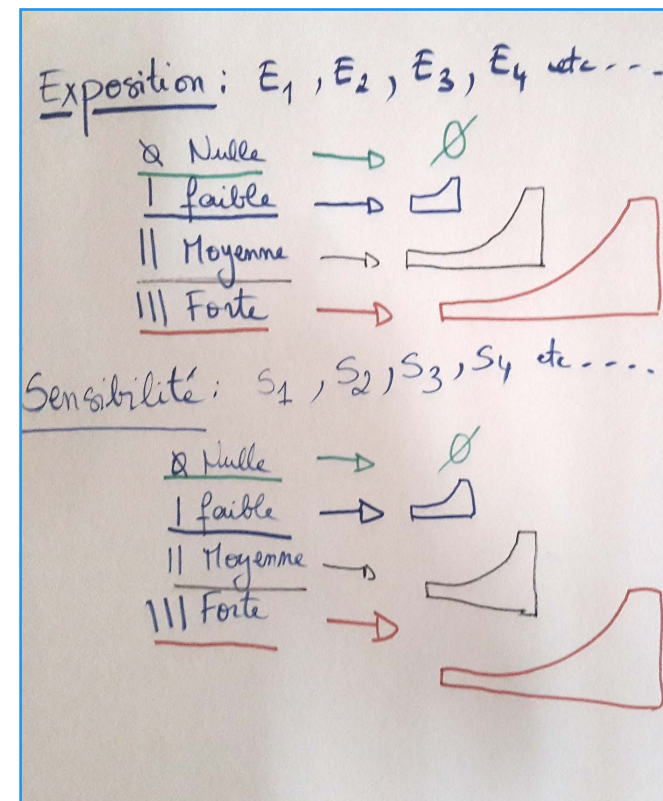 Exposition : E1, E2, E3, E4 etc....
0 Nulle → Ø
| faible →
|| Moyenne →
||| Forte →
Sensibilité : S1, S2, S3, S4 etc.....
0 Nulle → Ø
| faible →
|| Moyenne →
||| Forte →